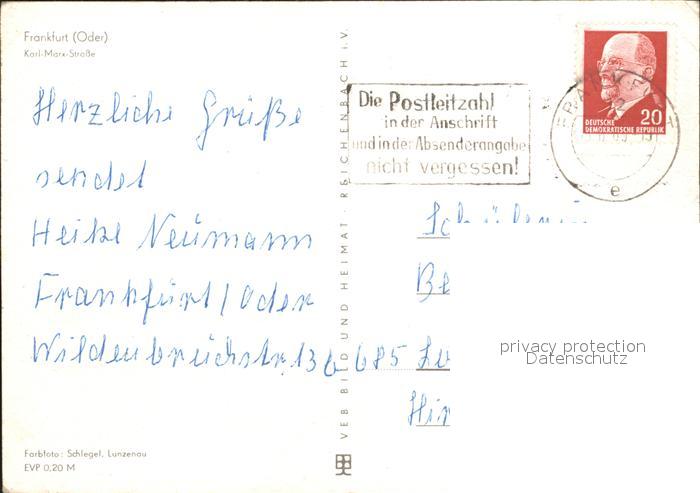 Frankfurt (Oder)
Karl-Marx-Straße
Herzliche Grüße
sendet
Heike Neumann
Frankfurt/Oder
Wildenbruchstr. 13
Farbfoto: Schlegel, Lunzenau
EVP 0,20 M
VEB BILD UND HEIMAT · REICHENBACH i.V.
Die Postleitzahl
in der Anschrift
und in der Absenderangabe
nicht vergessen!
20
DEUTSCHE
DEMOKRATISCHE REPUBLIK
e
Be
685
Hir
privacy protection
Datenschutz